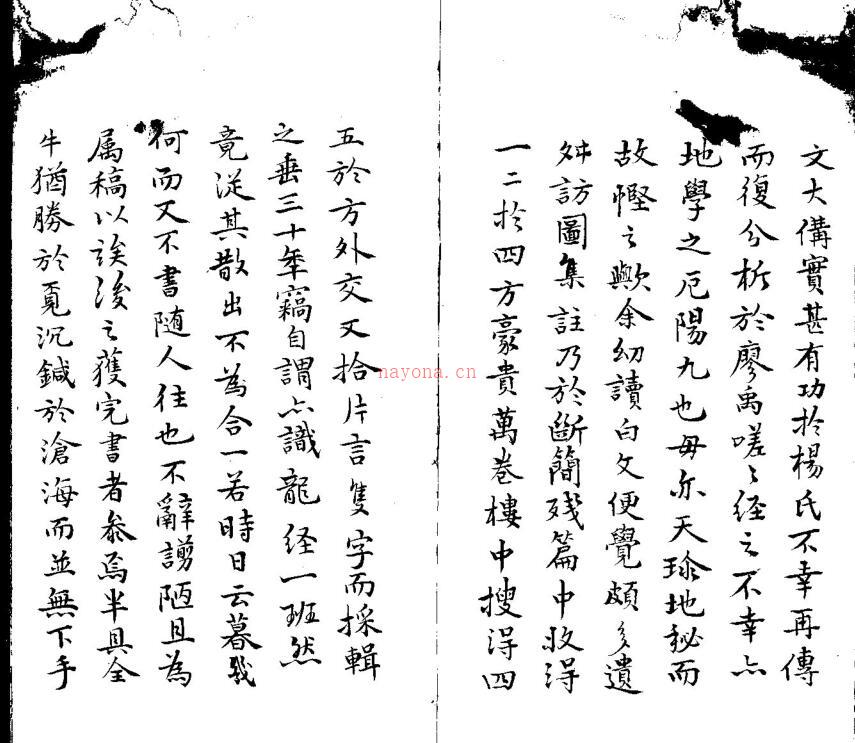 文大備實甚有功扵楊氏不幸再傳
而復分析於廖禹嗟〻経之不幸亦
地學之厄陽九也毋亦天珎地秘而
故慳之歟余幼讀白文便覺頗多遺
舛訪圖集註乃於断簡残篇中收得
一二扵四方豪貴萬卷樓中搜得四
五於方外交又拾片言隻字而採輯
之垂三十年竊自謂亦識龍経一班然
竟従其散出不為合一若時日云暮我
何而又不書随人徃也不辭謭陋且為
属稿以俟後之獲完書者叅焉半具全
牛猶勝於覓沉鍼於滄海而並無下手
nayona.cn